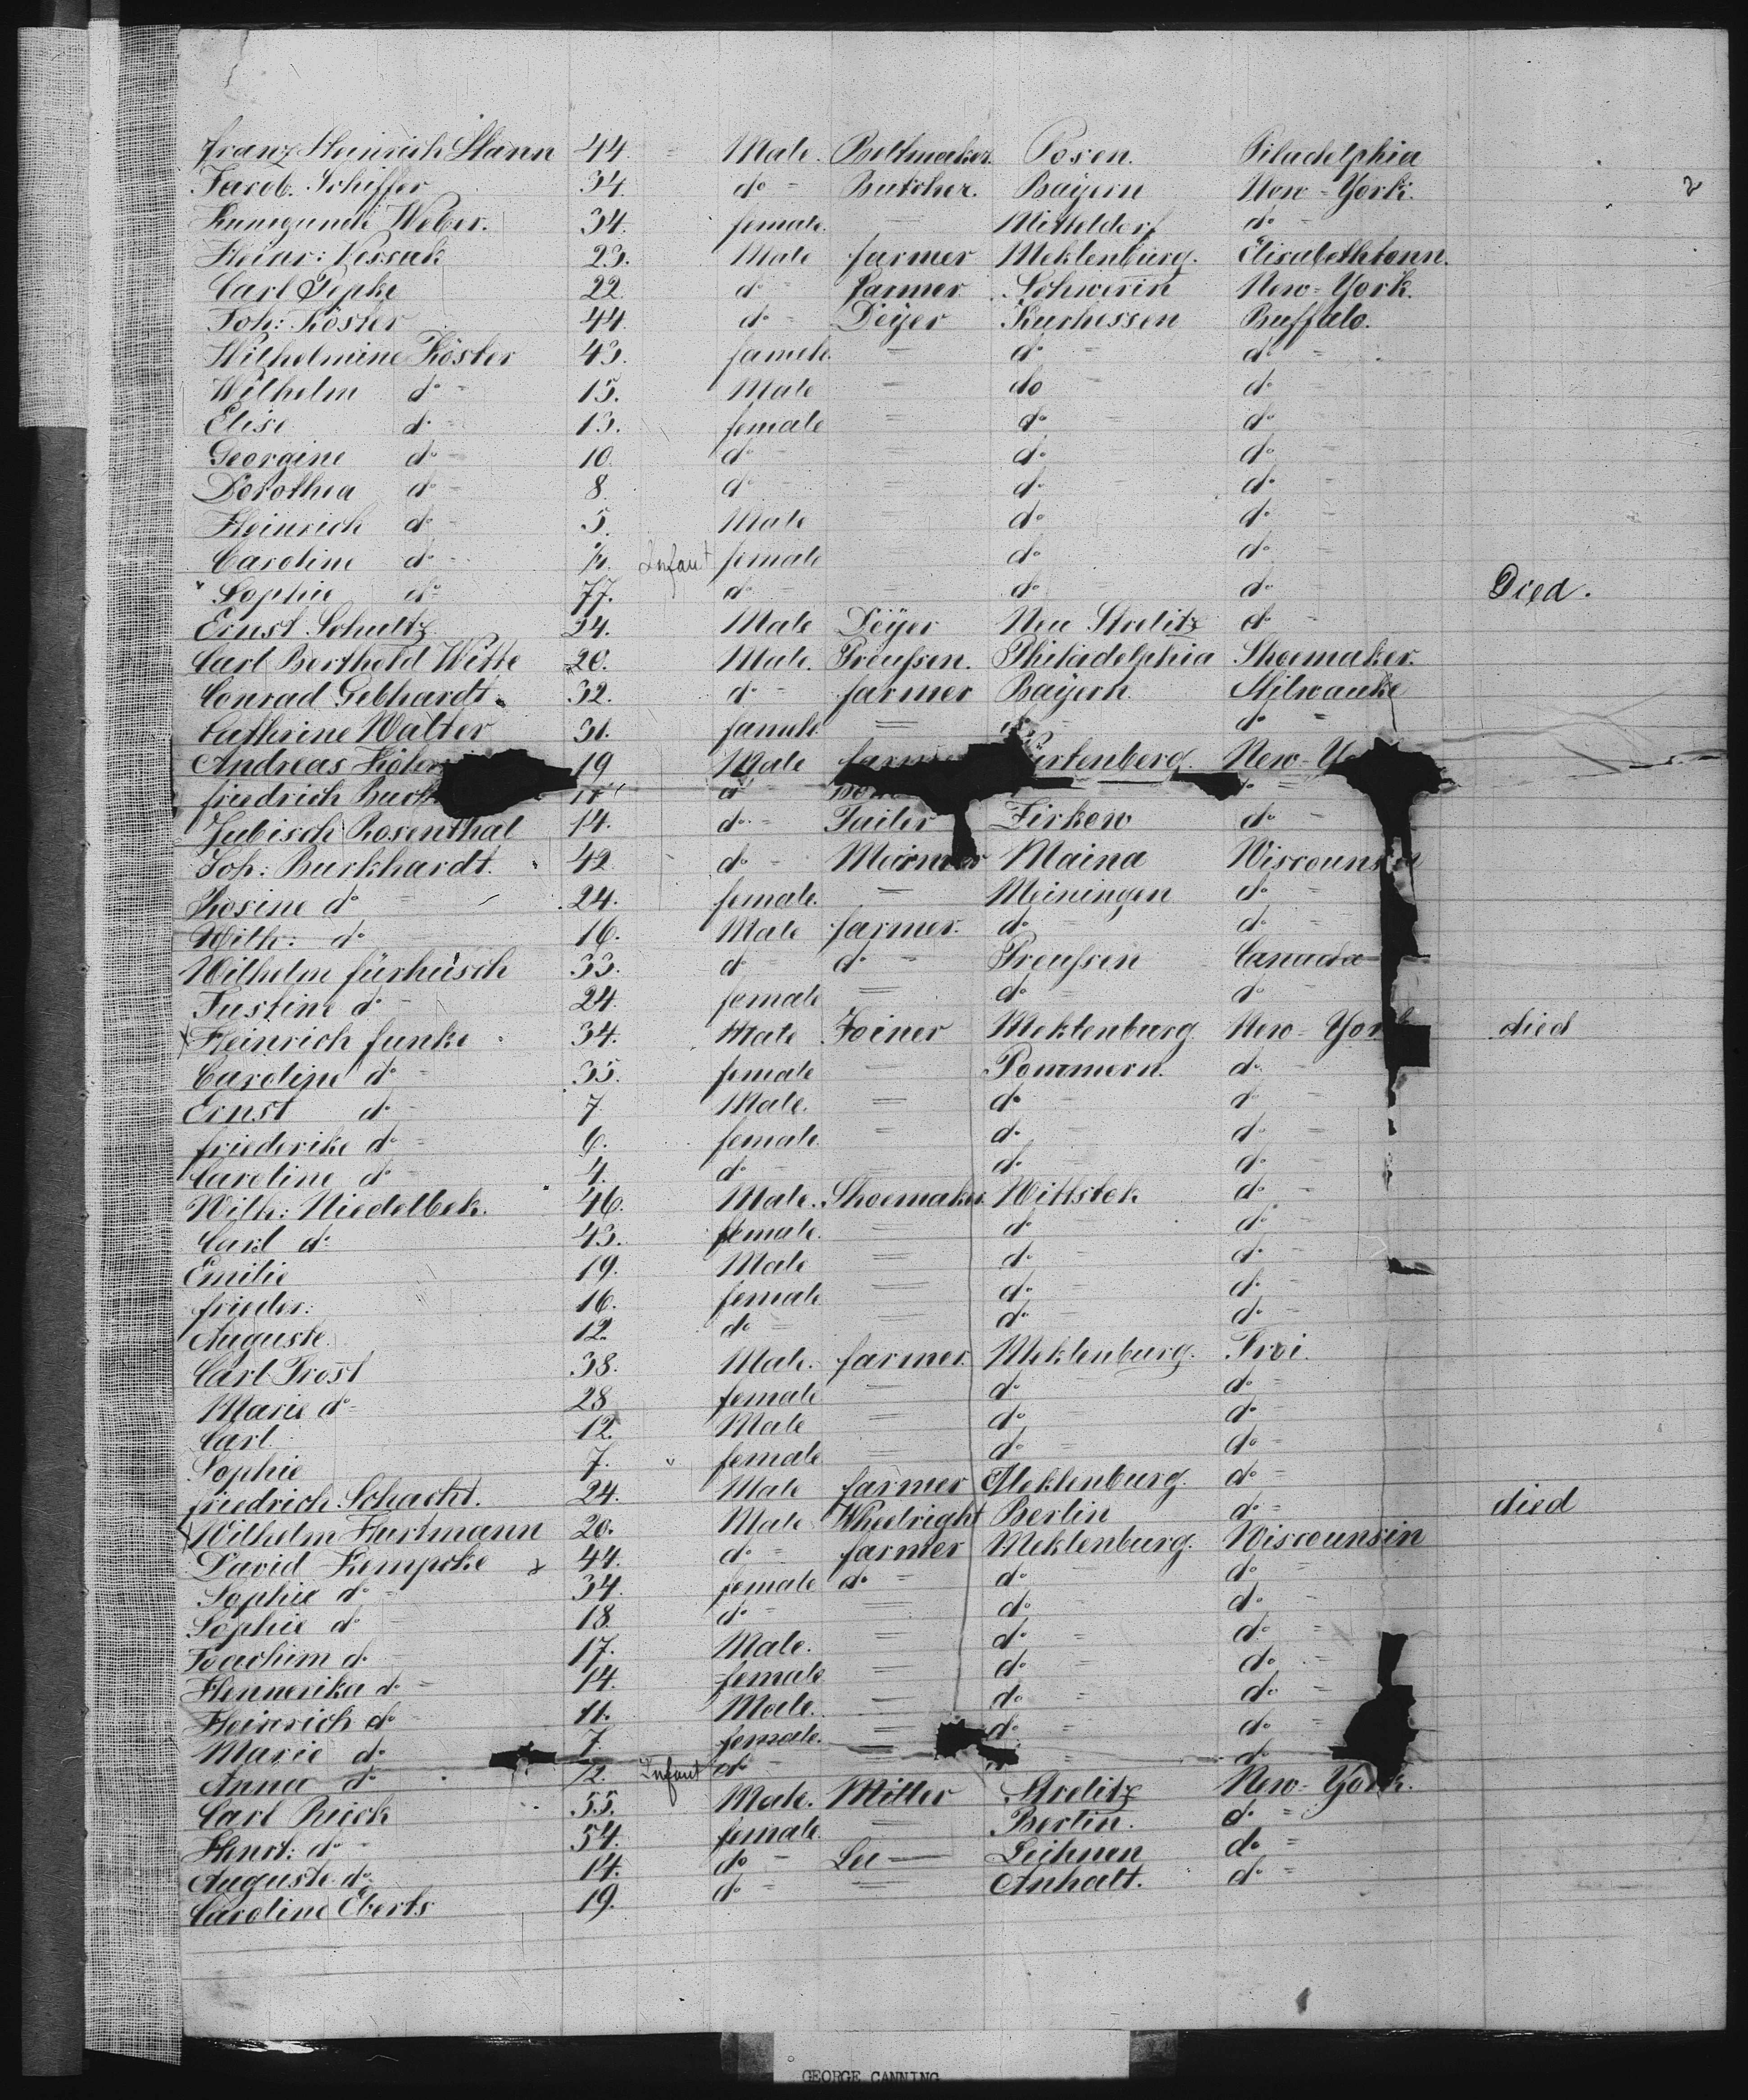 2
Franz Heinrich Stann 44 Male. Beltmaker. Posen. Piladelphia
Jacob. Schiffer 34 do Butcher. Bayern New-York.
Kunigunde Weber. 34. female. Mitteldorf do
Heinr: Kessak 23. Male farmer Meklenburg. Elisabethtonn.
Carl Pipke 22 do farmer Schwerin New-York.
Joh: Köster 44. do Deÿer Kurhessen Buffalo.
Wilhelmine Köster 43. famele. do do
Wilhelm do 15. Male do do
Elise do 13. female do do
Georgine do 10. do do do
Dorothea do 8. do do do
Heinrich do 5. Male do do
Caroline do Infant female do do
Sophie do 77. do do do Died.
Ernst Schultz 24. Male Deÿer Neu Strelitz do
Carl Berthold Witte 20. Male. Preussen. Philadelphia Shoemaker.
Conrad Gebhardt. 32. do farmer Bayern Milwauke
Cathrine Walter 31. famele. do
Andreas 19 Male New-Yo
friedrich do do
Jubisch Rosenthal 14. do Tailer Zirkow do
Joh: Burkhardt. 42. do Maina Wiscounsin
Rosine do 24. female. Meiningen do
Wilh: do 16. Male farmer. do do
Wilhelm fürhüsch 33. do do Preussen Canada
Justine do 24. female do do
Heinrich funke 34. Male Joiner Meklenburg New-York died
Caroline do 35. female Pommern. do
Ernst do 7. Male. do do
friederike do 6. female. do do
Caroline do 4. do do do
Wilh: Niedelbek. 46. Male. Shoemaker. Wittstok do
Carl do 43. female. do do
Emilie 19. Male do do
frieder: 16. female do do
Auguste. 12. do do do
Carl Trost 38. Male. farmer. Meklenburg. Troi.
Marie do 28 female do do
Carl 12. Male do do
Sophie 7. female do do
friedrich Schacht. 24. Male farmer Meklenburg. do
Wilhelm Hurtmann 20. Male Wheelright Berlin do died
David Kempcke 44. do farmer Meklenburg. Wiscounsin
Sophie do 34. female do do do
Sophie do 18. do do do
Joachim do 17. Male. do do
Hennerika do 14. female do do
Heinrich do 11. Male. do do
Marie do 7. female. do do
Anna do Infant do do
Carl Rieck 55. Male. Miller Strelitz New-York.
Henrt: do 54. female. Berlin. do
Auguste do 14. do do
Caroline Eberts 19. do Anhalt. do
GEORGE CANNING